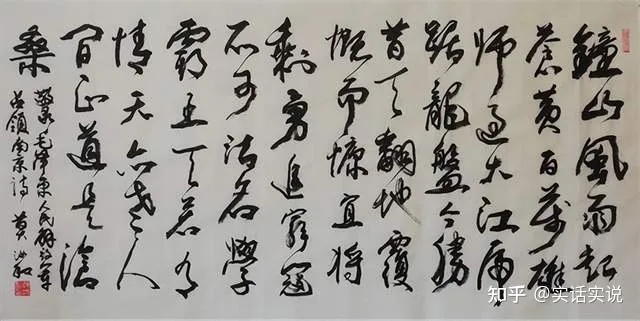 鐘山風雨起
蒼黃百萬雄
師過大江虎
踞龍盤今勝
昔天翻地覆
慨而慷宜將
剩勇追窮寇
不可沽名學
霸王天若有
情天亦老人
間正道是滄
桑
錄毛澤東人民解放軍
占領南京詩 莫
知乎 @实话实说